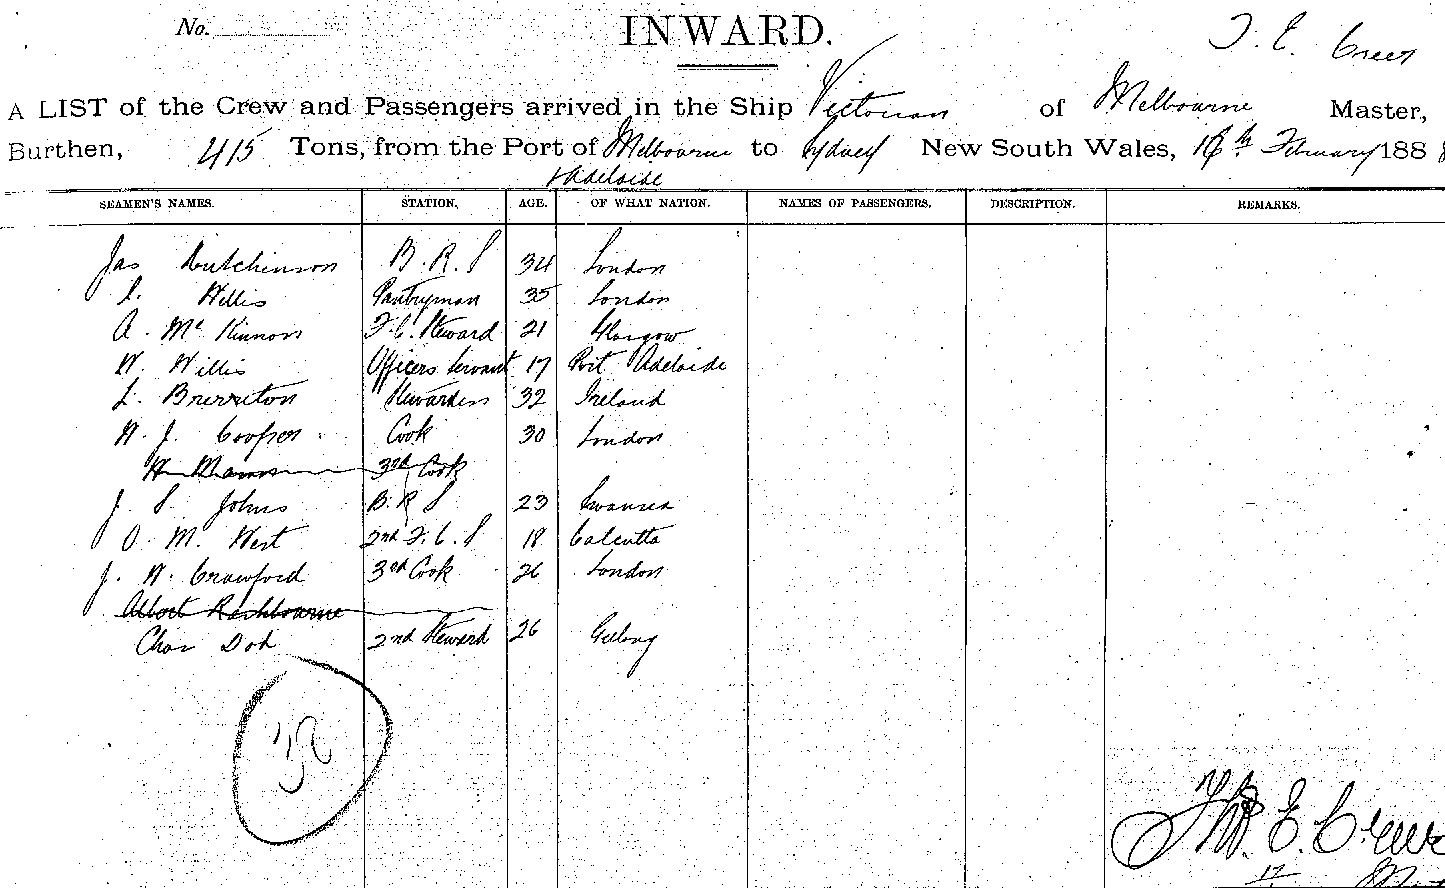 No.
INWARD.
T. E. Creer
A LIST of the Crew and Passengers arrived in the Ship Victorian of Melbourne Master,
Burthen, 415 Tons, from the Port of Melbourne to Sydney New South Wales, 16th February 1888
& Adelaide
SEAMEN'S NAMES. STATION. AGE. OF WHAT NATION. NAMES OF PASSENGERS. DESCRIPTION. REMARKS.
Jas Hutchinson B. R. S 34 London
Willis Pantryman 35 London
A. McKinnon F. C. Steward 21 Glasgow
W. Willis Officers Servant 17 Port Adelaide
L. Brerriton Stewardess 32 Ireland
W. J. Cooper Cook 30 London
3rd Cook
J. S. Johns B. R S 23 Swansea
O. M. West 2nd F. C. S 18 Calcutta
J. W. Crawford 3rd Cook 26 London
Albert Rashbourne
Chas Dod 2nd Steward 26 Geelong
Thos. E. Creer